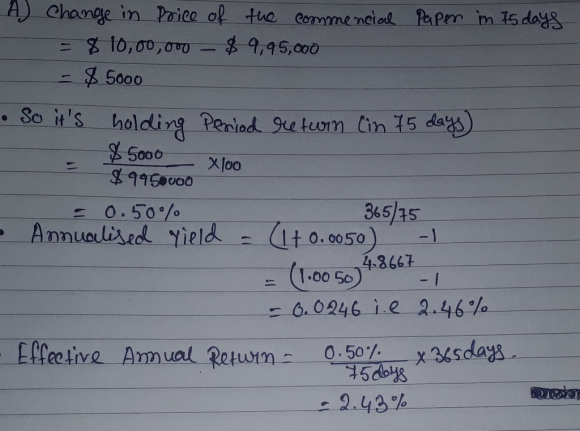 A) Change in Price of the commencial Paper in 75 days
= $ 10,00,000 — $ 9,95,000
= $ 5000
• So it's holding Period return (in 75 days)
= $ 5000 / $ 9950000 × 100
= 0.50%
• Annualised Yield = (1 + 0.0050)^365/75 - 1
= (1.0050)^4.8667 - 1
= 0.0246 i.e 2.46%
Effective Annual Return = 0.50% / 75 days × 365 days.
= 2.43%